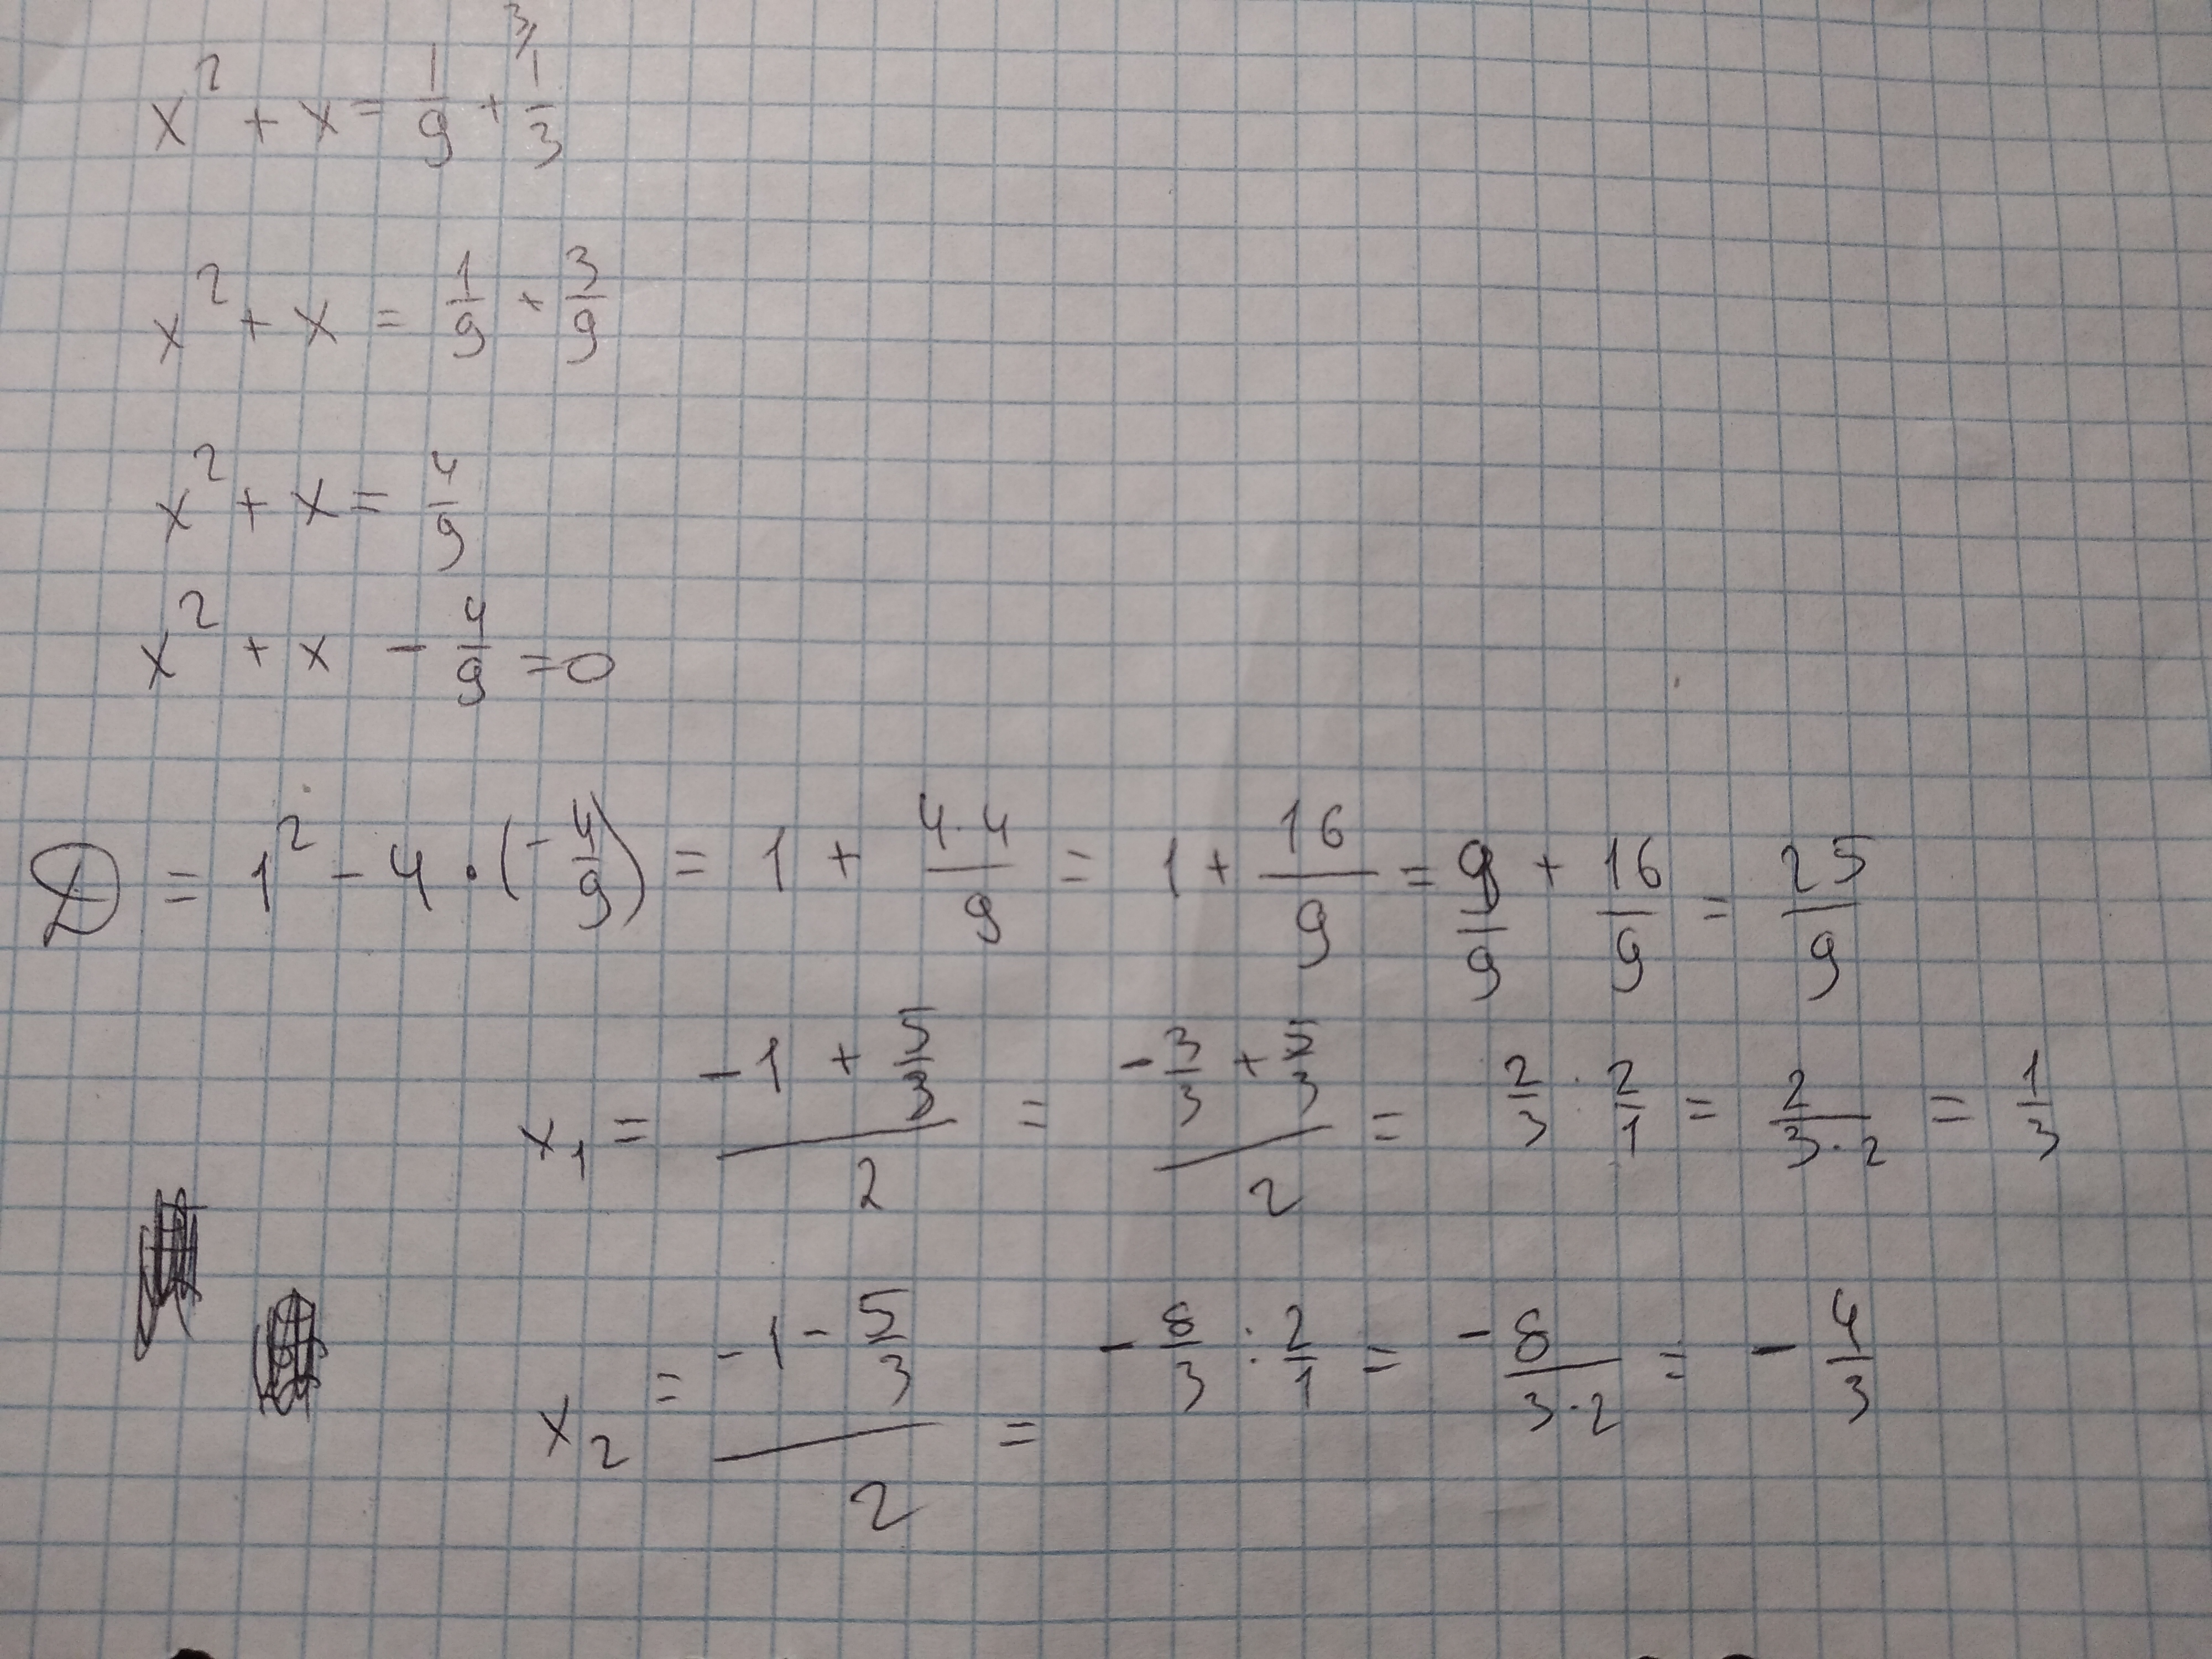 x² + x = 1/9 + 1/3 ³⁄
x² + x = 1/9 + 3/9
x² + x = 4/9
x² + x - 4/9 = 0
D = 1² - 4 · (-4/9) = 1 + 4·4/9 = 1 + 16/9 = 9/9 + 16/9 = 25/9
x₁ = (-1 + 5/3)/2 = (-3/3 + 5/3)/2 = 2/3 · 2/1 = 2/(3·2) = 1/3
x₂ = (-1 - 5/3)/2 = -8/3 : 2/1 = -8/(3·2) = -4/3